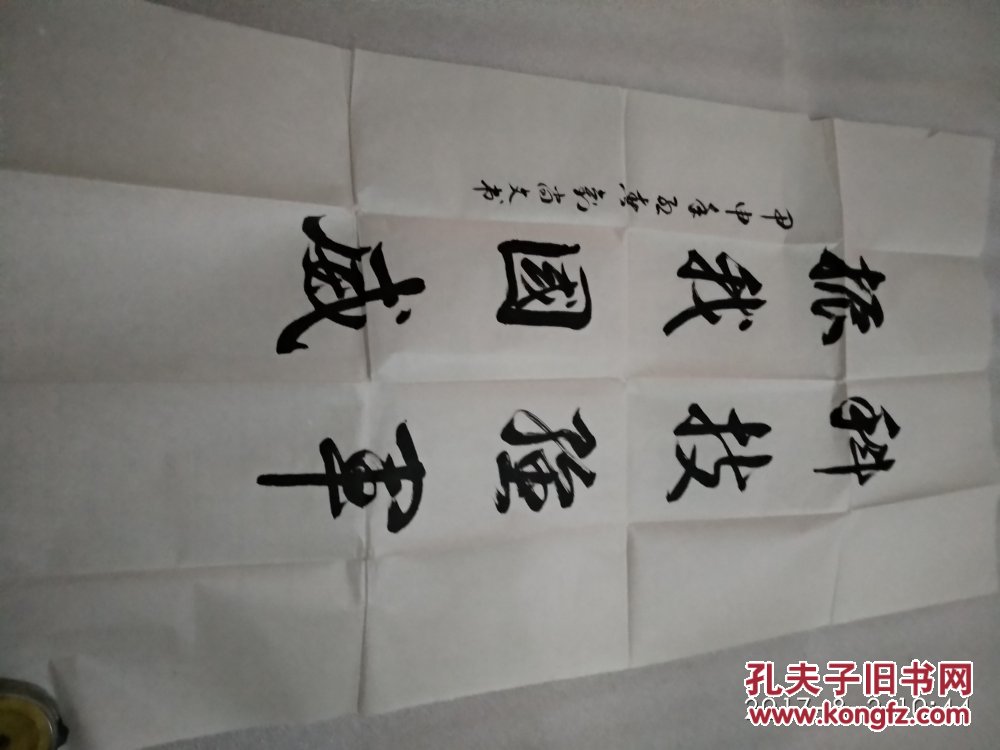 科技强軍
振我國威
甲申年
尚文书
孔夫子旧书网
www.kongfz.com